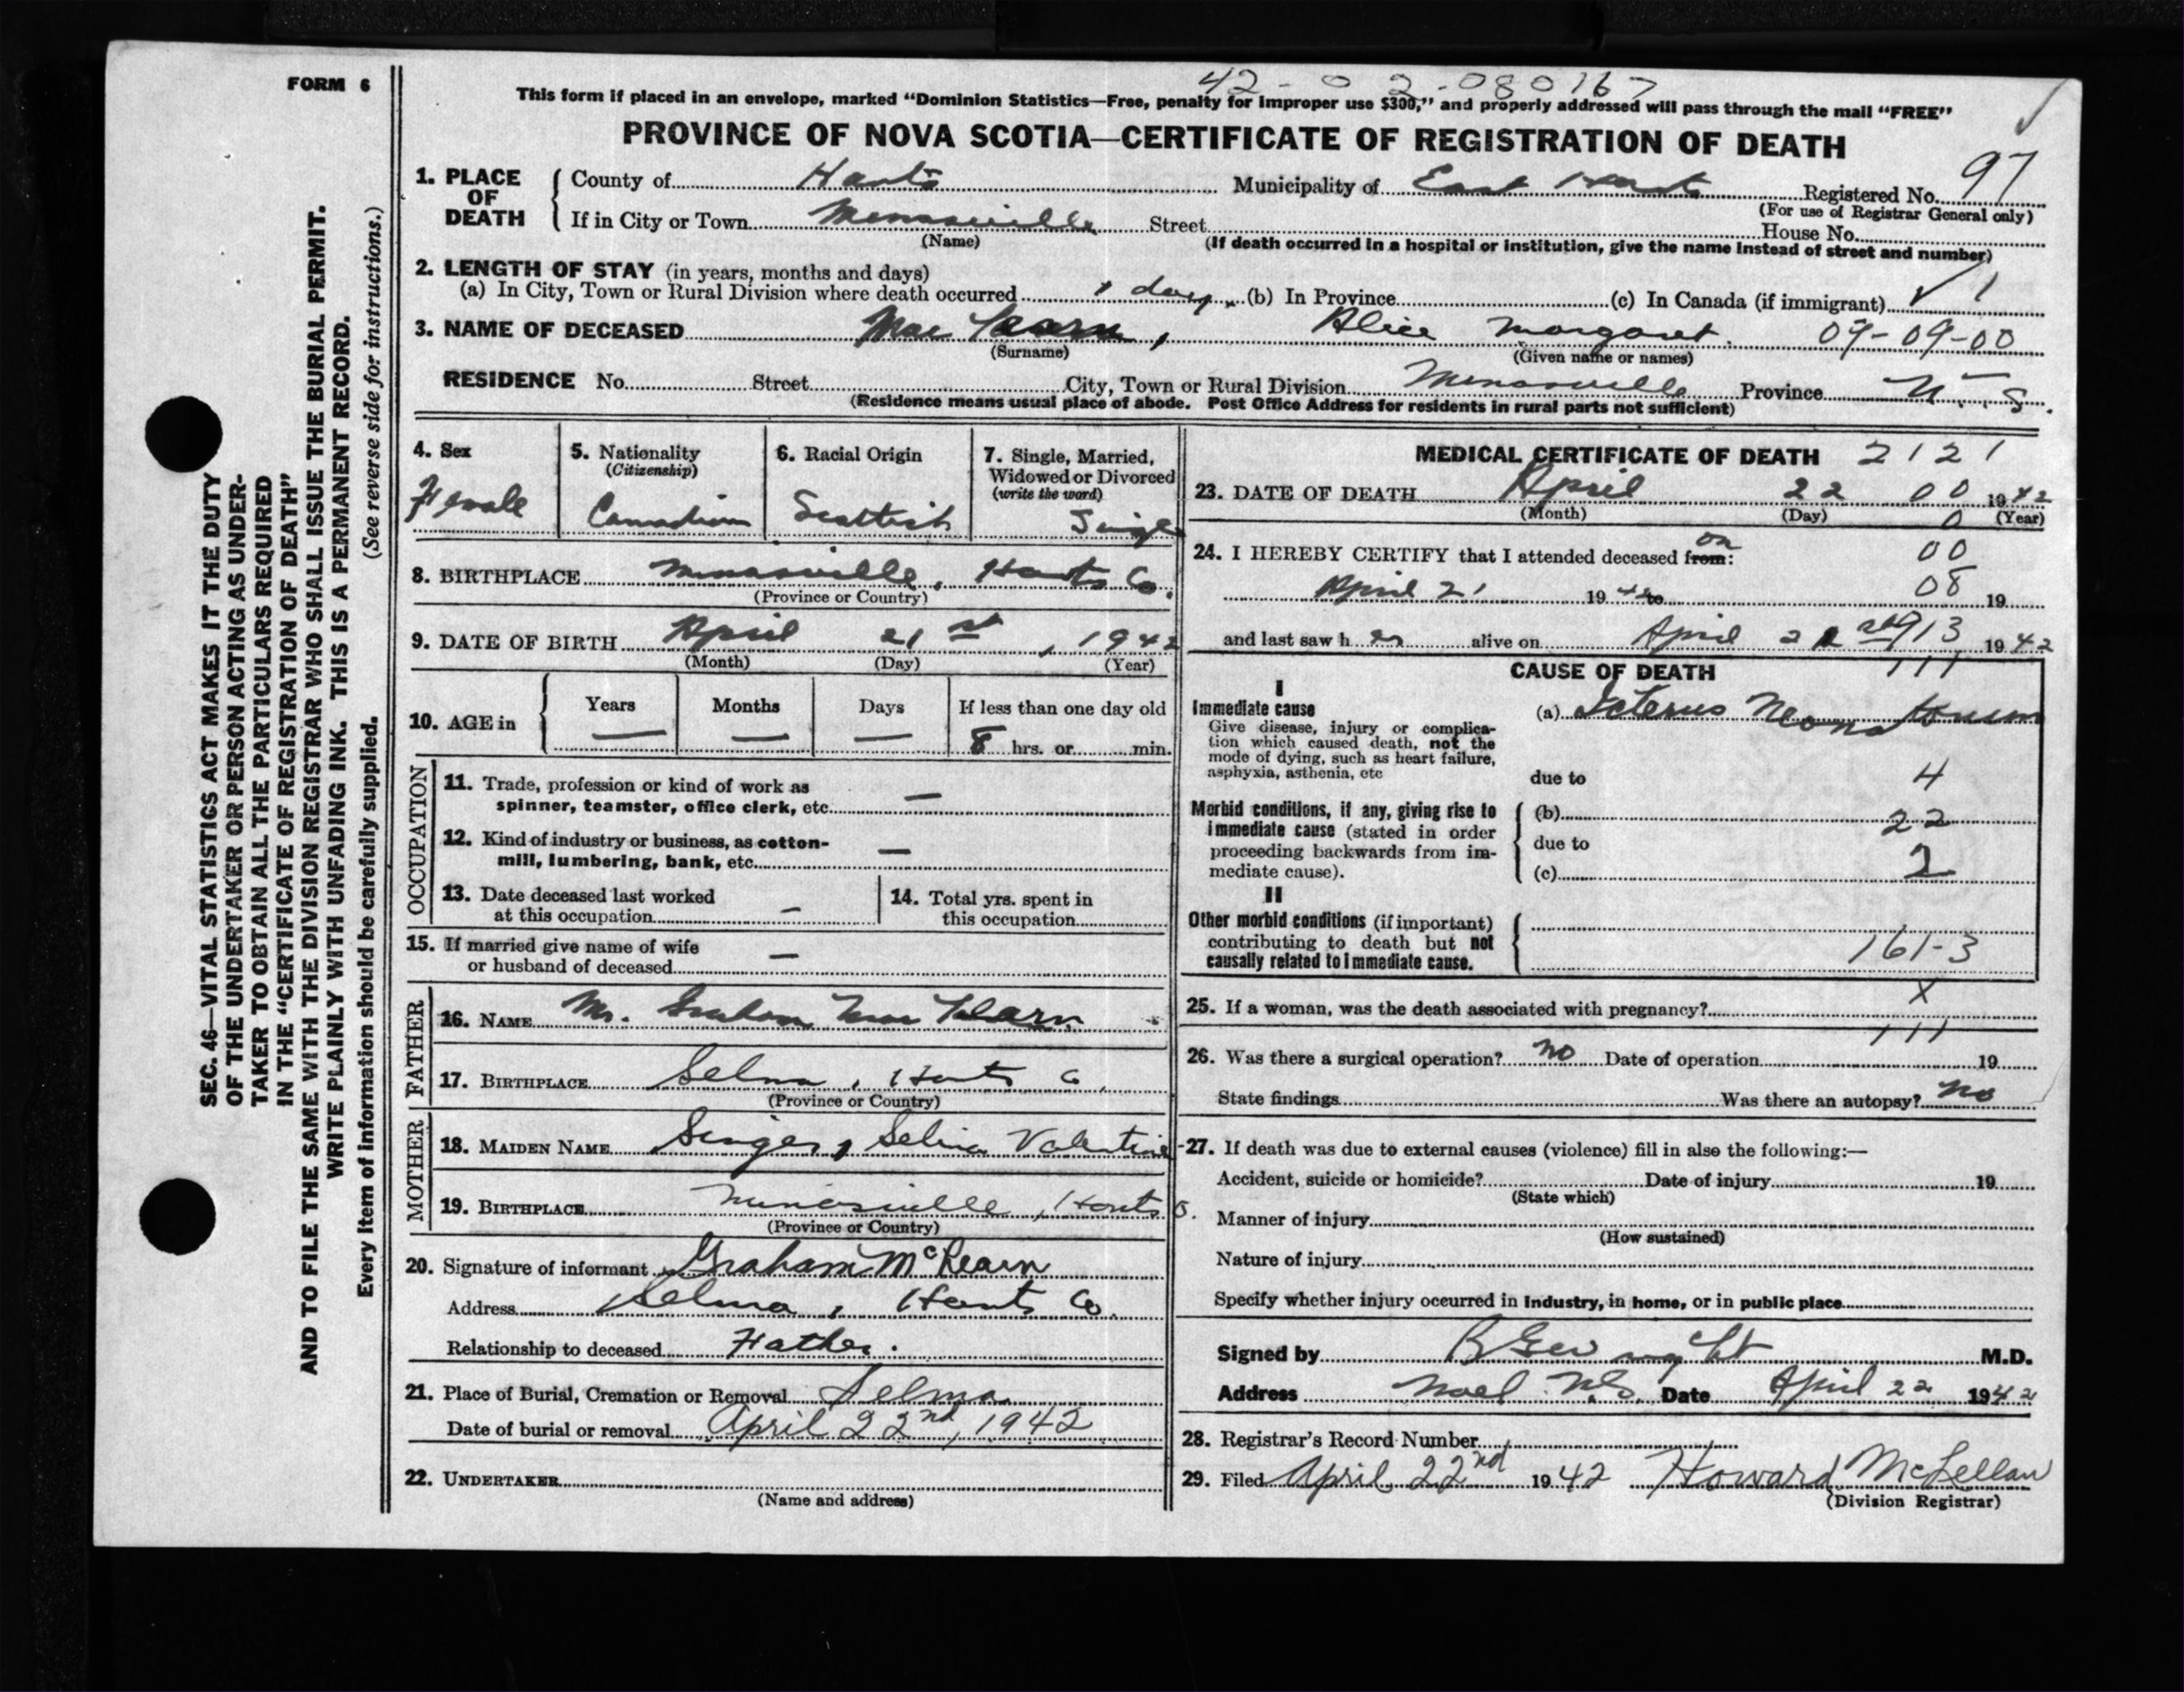 FORM 6
42-02-080167
This form if placed in an envelope, marked "Dominion Statistics—Free, penalty for improper use $300," and properly addressed will pass through the mail "FREE"
PROVINCE OF NOVA SCOTIA—CERTIFICATE OF REGISTRATION OF DEATH
1. PLACE OF DEATH County of Hants Municipality of East Hants Registered No. 97
(For use of Registrar General only)
If in City or Town Minasville Street House No.
(Name) (If death occurred in a hospital or institution, give the name instead of street and number)
2. LENGTH OF STAY (in years, months and days)
(a) In City, Town or Rural Division where death occurred 1 day (b) In Province (c) In Canada (if immigrant) 1
3. NAME OF DECEASED Mac Kearn, Alice Margaret. 09-09-00
(Surname) (Given name or names)
RESIDENCE No. Street City, Town or Rural Division Minasville Province N.S.
(Residence means usual place of abode. Post Office Address for residents in rural parts not sufficient)
4. Sex
Female
5. Nationality
(Citizenship)
Canadian
6. Racial Origin
Scottish
7. Single, Married,
Widowed or Divorced
(write the word)
Single
8. BIRTHPLACE Minasville, Hants Co.
(Province or Country)
9. DATE OF BIRTH April 21st, 1942
(Month) (Day) (Year)
10. AGE in Years Months Days If less than one day old
— — — 8 hrs. or min.
OCCUPATION
11. Trade, profession or kind of work as
spinner, teamster, office clerk, etc. —
12. Kind of industry or business, as cotton-
mill, lumbering, bank, etc. —
13. Date deceased last worked
at this occupation —
14. Total yrs. spent in
this occupation
15. If married give name of wife
or husband of deceased —
FATHER
16. NAME Mr. Graham Mac Kearn
17. BIRTHPLACE Selma, Hants Co.
(Province or Country)
MOTHER
18. MAIDEN NAME Singer, Selina Valentine
19. BIRTHPLACE Minasville, Hants Co.
(Province or Country)
20. Signature of informant Graham McKearn
Address Selma, Hants Co.
Relationship to deceased Father.
21. Place of Burial, Cremation or Removal Selma
Date of burial or removal April 22nd, 1942
22. UNDERTAKER
(Name and address)
MEDICAL CERTIFICATE OF DEATH 2121
23. DATE OF DEATH April 22 00 1942
(Month) (Day) 0 (Year)
24. I HEREBY CERTIFY that I attended deceased from: on 00
April 21 1942 to 08 19
and last saw her alive on April 21st 913 1942
CAUSE OF DEATH 111
I
Immediate cause
Give disease, injury or complica-
tion which caused death, not the
mode of dying, such as heart failure,
asphyxia, asthenia, etc
(a) Icterus Neonatorum
due to 4
Morbid conditions, if any, giving rise to
immediate cause (stated in order
proceeding backwards from im-
mediate cause).
(b) 22
due to
(c) 2
II
Other morbid conditions (if important)
contributing to death but not
causally related to immediate cause.
161-3
25. If a woman, was the death associated with pregnancy? X
111
26. Was there a surgical operation? No Date of operation 19
State findings Was there an autopsy? No
27. If death was due to external causes (violence) fill in also the following:—
Accident, suicide or homicide? Date of injury 19
(State which)
Manner of injury
(How sustained)
Nature of injury
Specify whether injury occurred in industry, in home, or in public place
Signed by M.D.
Address Noel N.S. Date April 22 1942
28. Registrar's Record Number
29. Filed April 22nd 1942 Howard McLellan
(Division Registrar)
SEC. 46—VITAL STATISTICS ACT MAKES IT THE DUTY
OF THE UNDERTAKER OR PERSON ACTING AS UNDER-
TAKER TO OBTAIN ALL THE PARTICULARS REQUIRED
IN THE "CERTIFICATE OF REGISTRATION OF DEATH"
AND TO FILE THE SAME WITH THE DIVISION REGISTRAR WHO SHALL ISSUE THE BURIAL PERMIT.
WRITE PLAINLY WITH UNFADING INK. THIS IS A PERMANENT RECORD.
Every item of information should be carefully supplied. (See reverse side for instructions.)